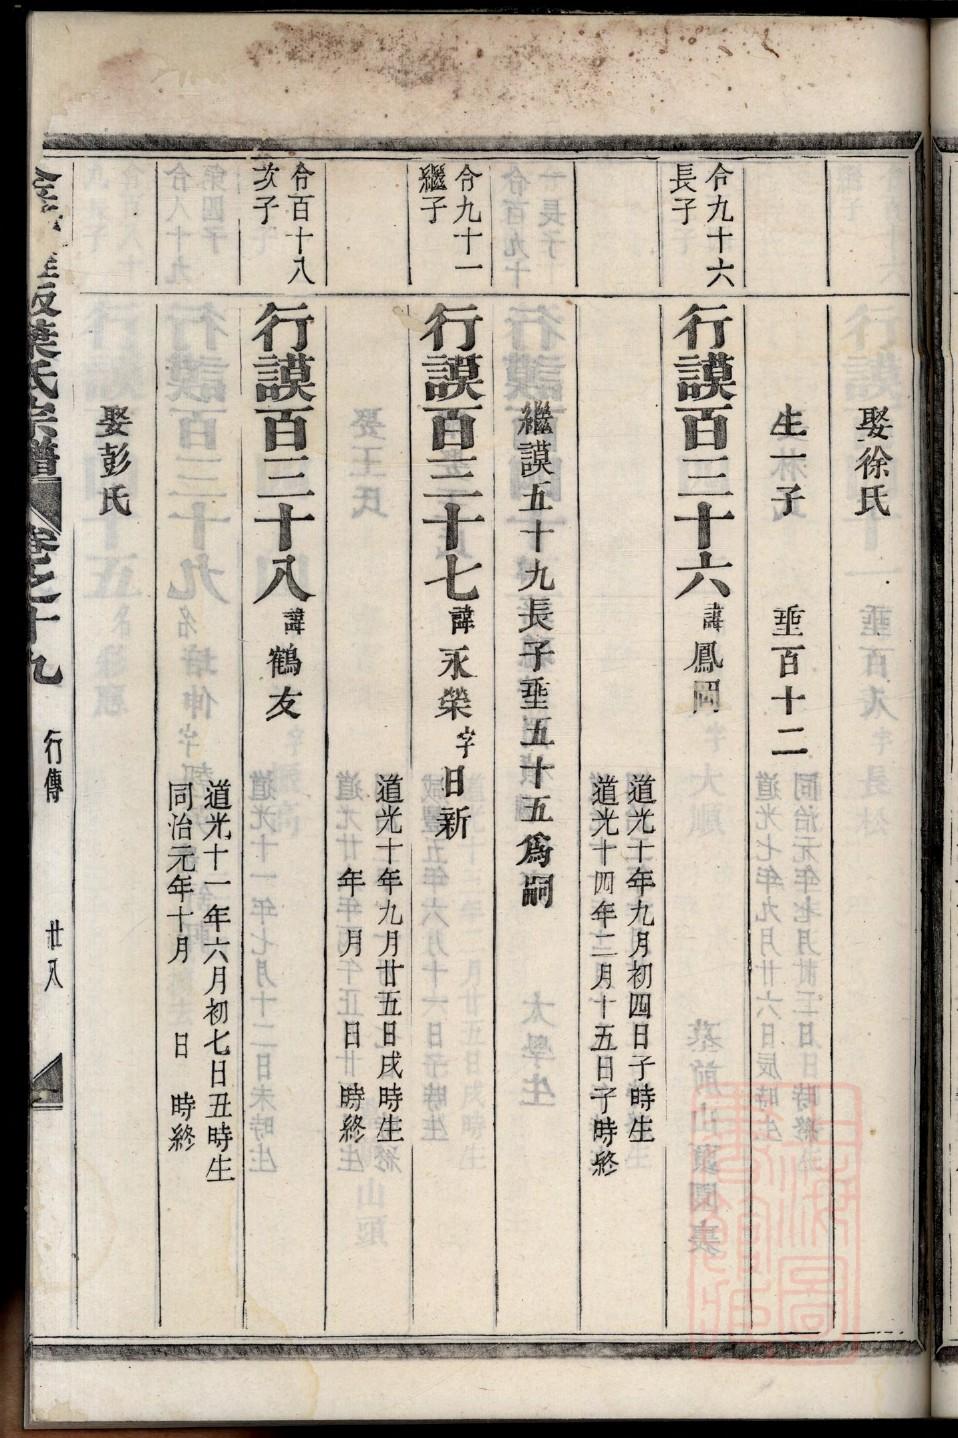 娶徐氏
生一子 垂百十二
令九十六
長子
行謨百三十六 諱鳳岡
道光十年九月初四日子時生
道光十四年二月十五日子時終
繼謨五十九長子垂五十五爲嗣
令九十一
繼子
行謨百三十七 諱永榮 字日新
道光十年九月廿五日戌時生
年 月 日 時終
令百十八
次子
行謨百三十八 諱鶴友
道光十一年六月初七日丑時生
同治元年十月 日 時終
娶彭氏
葉氏宗譜 卷之十九 行傳 廿八